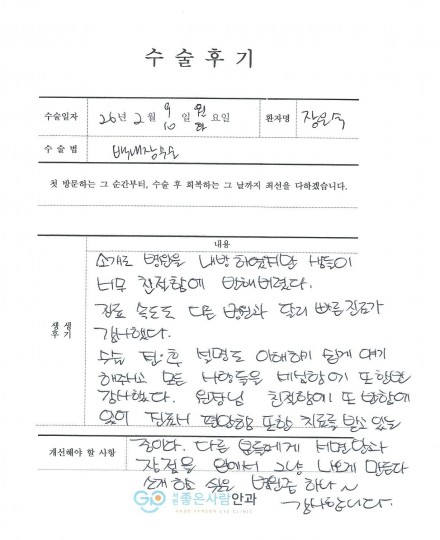 수술후기
수술일자 26년 2월 9 일 월 요일 환자명 장은숙
10 화
수술법 백내장수술
첫 방문하는 그 순간부터, 수술 후 회복하는 그 날까지 최선을 다하겠습니다.
내용
생생후기
소개로 병원을 내방 하였지만 사람들이
너무 친절함에 반해버렸다.
진료 속도도 다른 병원과 달리 빠른진료가
감사했다.
수술 전·후 설명도 이해하기 쉽게 얘기
해주시고 모든 사람들을 세심함에 또한번
감사했다. 원장님 친절함에 또 반함에
있어 진료시 편안함 또한 치료를 받고 있는
개선해야 할 사항
중이다. 다른 분들에게
장점을 그냥 나오게 만든다
소개 하고 싶은 병원중 하나~
감사합니다.
GO 서면 좋은사람안과
GOOD PERSON EYE CLINIC